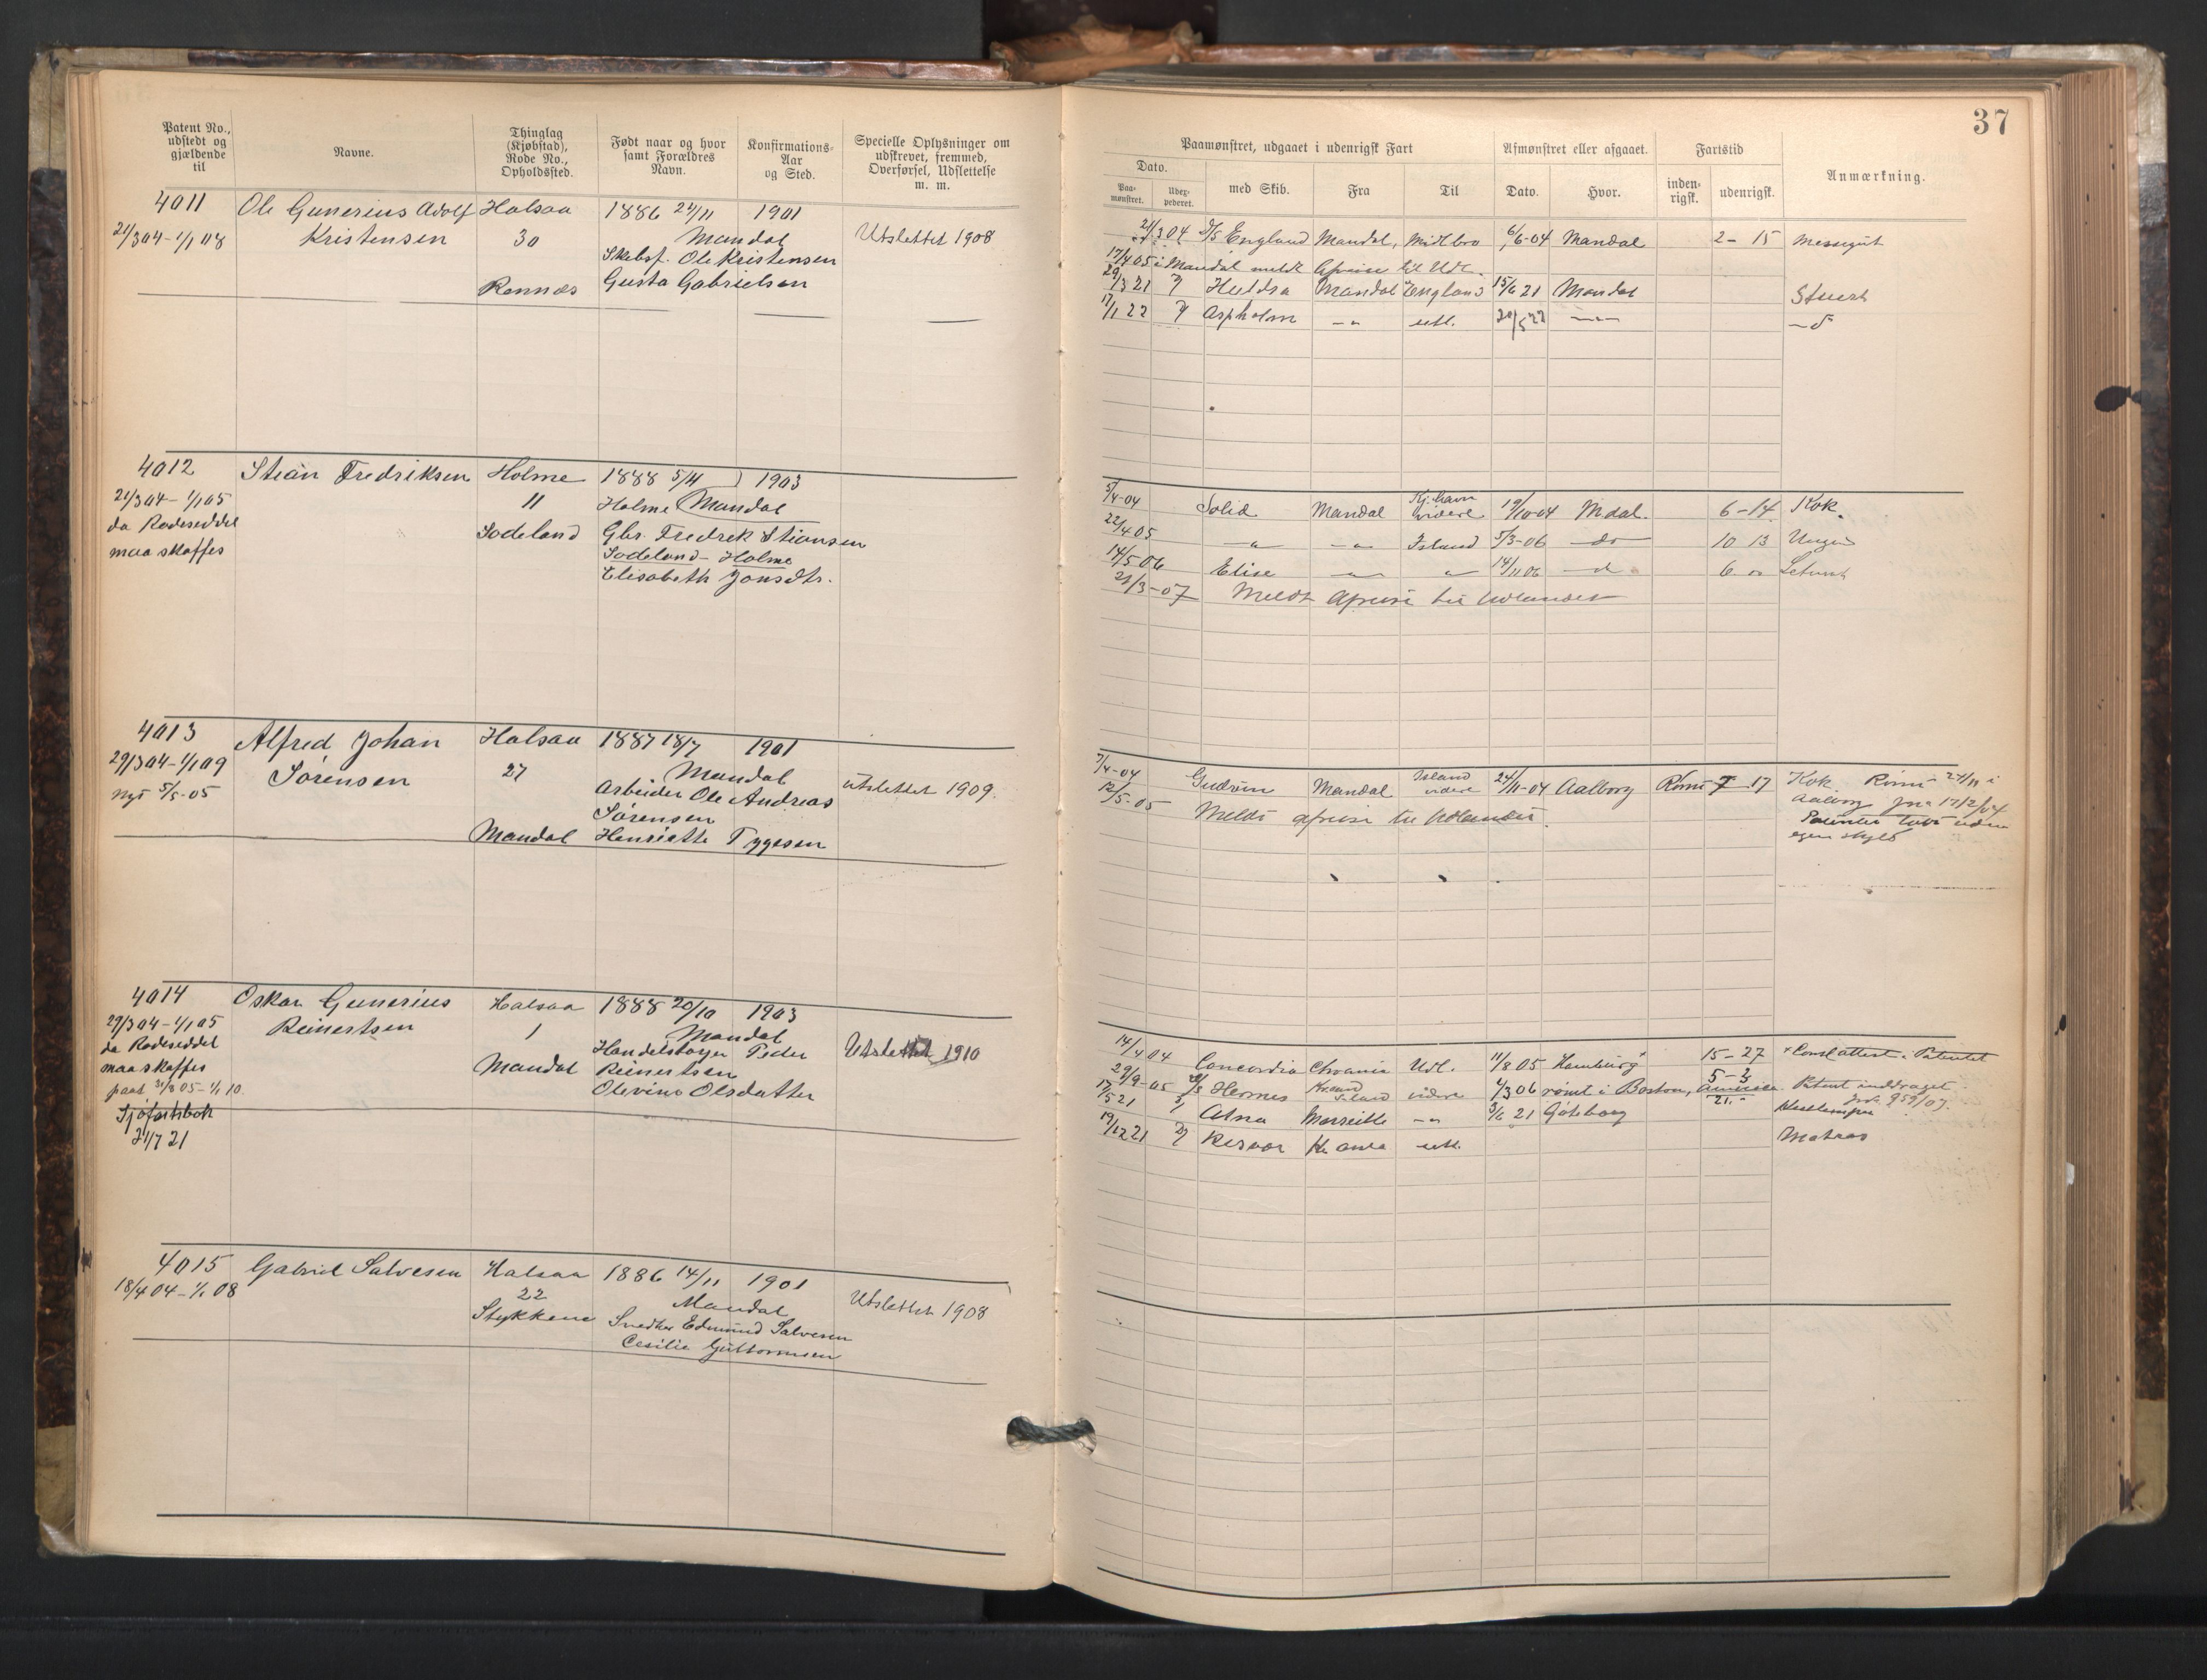 37
Patent No., udstedt og gjældende til
Navne.
Thinglag (Kjøbstad), Rode No., Opholdssted.
Født naar og hvor samt Forældres Navn.
Konfirmations-Aar og Sted.
Specielle Oplysninger om udskrevet, fremmed, Overførsel, Udslettelse m. m.
Paamønstret, udgaaet i udenrigsk Fart
Afmønstret eller afgaaet.
Fartstid
Anmærkning.
Dato.
Paa-mønstret.
Uder-pederet.
med Skib.
Fra
Til
Dato.
Hvor.
inden-rigsk.
udenrigsk.
4011 Ole Gunerius Adolf Halsaa 1886 24/11 1901
21/3 04 - 1/1 08 Kristensen 30 Mandal Utslettet 1908
Skibsf. Ole Kristensen
Rannæs Gusta Gabrielsen
21/3 04 D/S England Mandal, Midlbro 6/6-04 Mandal 2 - 15 Messegut
17/4 05 i Mandal meldt Afreise til Udl.
29/3 21 Huldra Mandal England 15/6 21 Mandal Stuert
17/1 22 Aspholm -"- utl. 20/5 22 -"-
4012 Stian Fredriksen Holme 1888 5/11 1903
21/3 04 - 1/1 05 11 Holme Mandal
da Rodeseddel Sodeland Gbr. Fredrek Stiansen
maa skaffes Sodeland - Holme
Elisabeth Jonsdtr.
5/4-04 Solid Mandal Kj.havn videre 19/10-04 Mdal. 6 - 14 Kok
22/4 05 -"- -"- Island 5/3-06 -do- 10 13 Ungm
14/5 06 Elise -"- -"- 14/11 06 -d- 6. "
21/3-07 Meldt Afreise til Udlandet
4013 Alfred Johan Halsaa 1887 18/7 1901
29/3 04 - 1/1 09 Sørensen 27 Mandal utslettet 1909.
Nyt 5/5-05 Arbeider Ole Andreas
Sørensen
Mandal Henriette Tygesen
7/4-04 Gudrun Mandal Island videre 24/11-04 Aalborg Rømt 7 - 17 Kok. Rømt 24/11 i
12/5-05 Meldt afreise til Udlandet. Aalborg
egen skyld
4014 Oskar Gunerius Halsaa 1888 20/10 1903
29/3 04 - 1/1 05 Reinertsen 1 Mandal
da Rodeseddel Handelsborger Peder Utslettet 1910
maa skaffes Mandal Reinertsen
1/1 10. Olevine Olsdatter
Sjøfartsbok
21/7 21
14/4 04 Concordia Chrania Udl. 11/8 05 Hamburg 15 - 27 Consl attest i Patentet
29/9-05 D/S Hermes videre 4/3 06 rømt i Boston, Amerika 5 - 3 Patent inddraget
17/5 21 Atna Marseille -"- 3/6 21 Göteborg
19/12 21 utl. Matros
4015 Gabriel Salvesen Halsaa 1886 14/11 1901
18/4 04 - 1/1 08 22 Mandal Utslettet 1908
Stykkene Snedker Edmund Salvesen
Cesilie Guttormsen